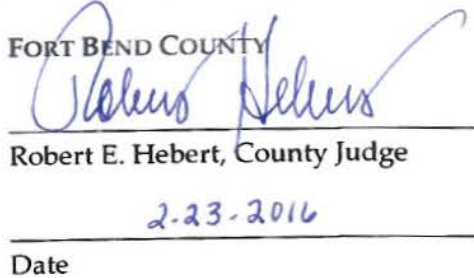 FORT BEND COUNTY
Robert Hebert
Robert E. Hebert, County Judge
2-23-2016
Date